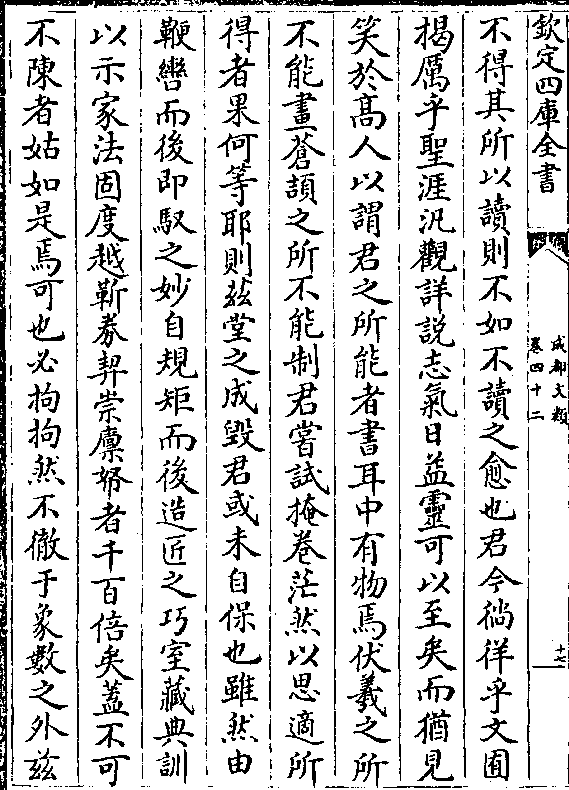 欽定四庫全書
成都文類
卷四十二
十七
不得其所以讀則不如不讀之愈也君今徜徉乎文囿
揭厲乎聖涯汎觀詳説志氣日益靈可以至矣而猶見
笑於髙人以謂君之所能者書耳中有物焉伏羲之所
不能畫蒼頡之所不能制君嘗試掩卷茫然以思適所
得者果何等耶則兹堂之成毁君或未自保也雖然由
鞭轡而後即馭之妙自規矩而後造匠之巧室藏典訓
以示家法固度越靳劵契崇廪帑者千百倍矣葢不可
不陳者姑如是焉可也必拘拘然不徹于象數之外兹